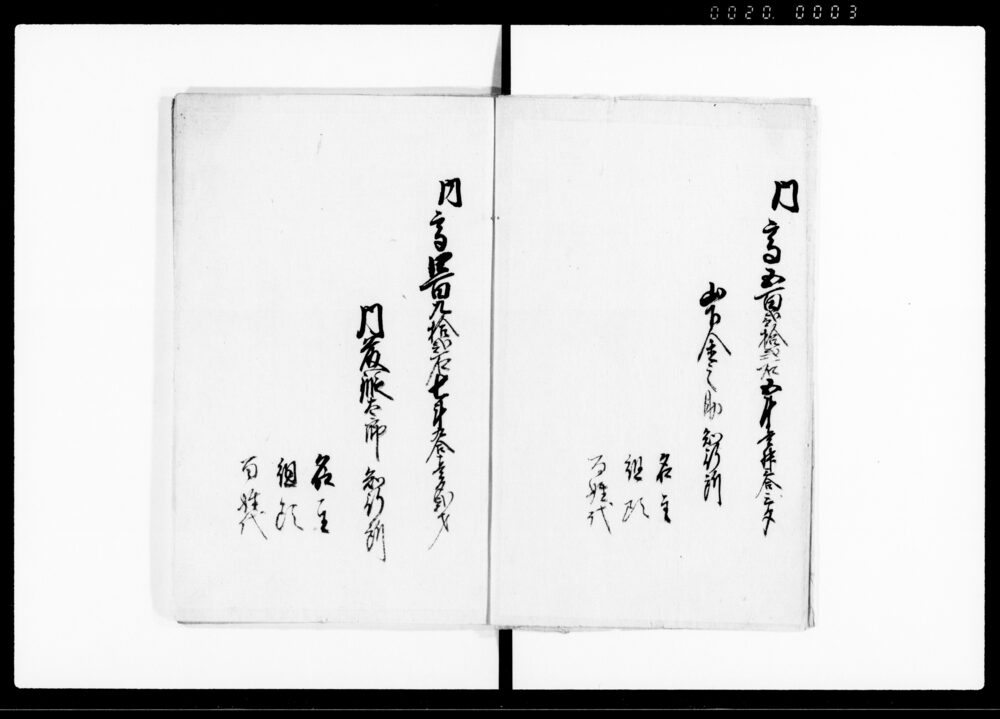 0020. 0003
同 高五百弐拾弐石五斗壱升合三夕
山下金之助 知行所
名主
組頭
百姓代
同 高四百九拾弐石七斗九合壱夕弐才
門太郎 知行所
名主
組頭
百姓代